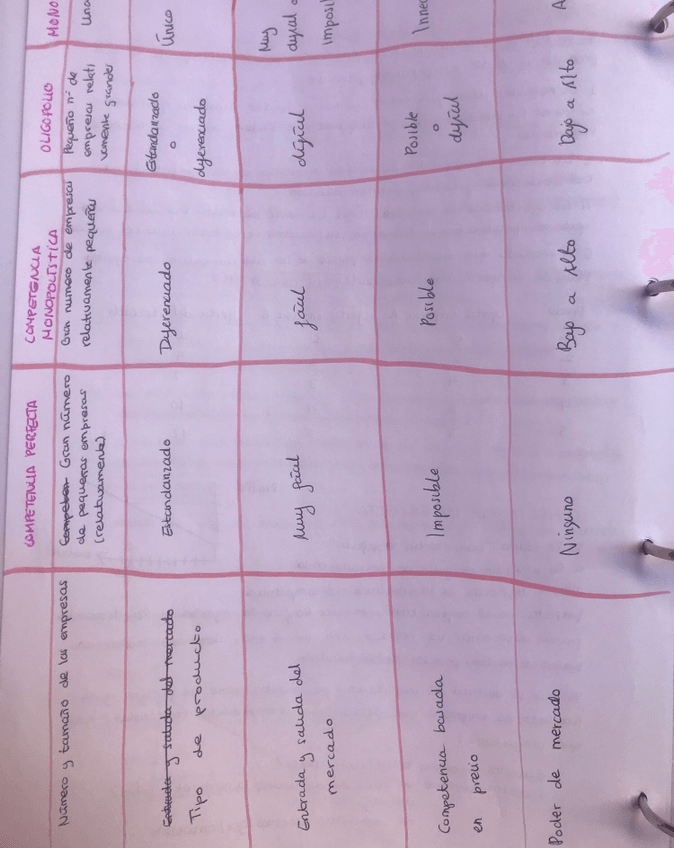 COMPETENCIA PERFECTA
COMPETENCIA
MONOPOLÍSTICA
OLIGOPOLIO
MONO
Número y tamaño de las empresas
Competen Gran número
de pequeñas empresas
(relativamente)
Gran número de empresas
relativamente pequeñas
Pequeño nº de
empresas relati
vamente grandes
Una
Entrada y salida del mercado
Tipo de producto
Estandarizado
Diferenciado
Estandarizado
o
diferenciado
Único
Entrada y salida del
mercado
Muy fácil
fácil
difícil
Muy
difícil o
Imposi
Competencia basada
en precio
Imposible
Posible
Posible
o
difícil
Innec
Poder de mercado
Ninguno
Bajo a Alto
Bajo a Alto
A